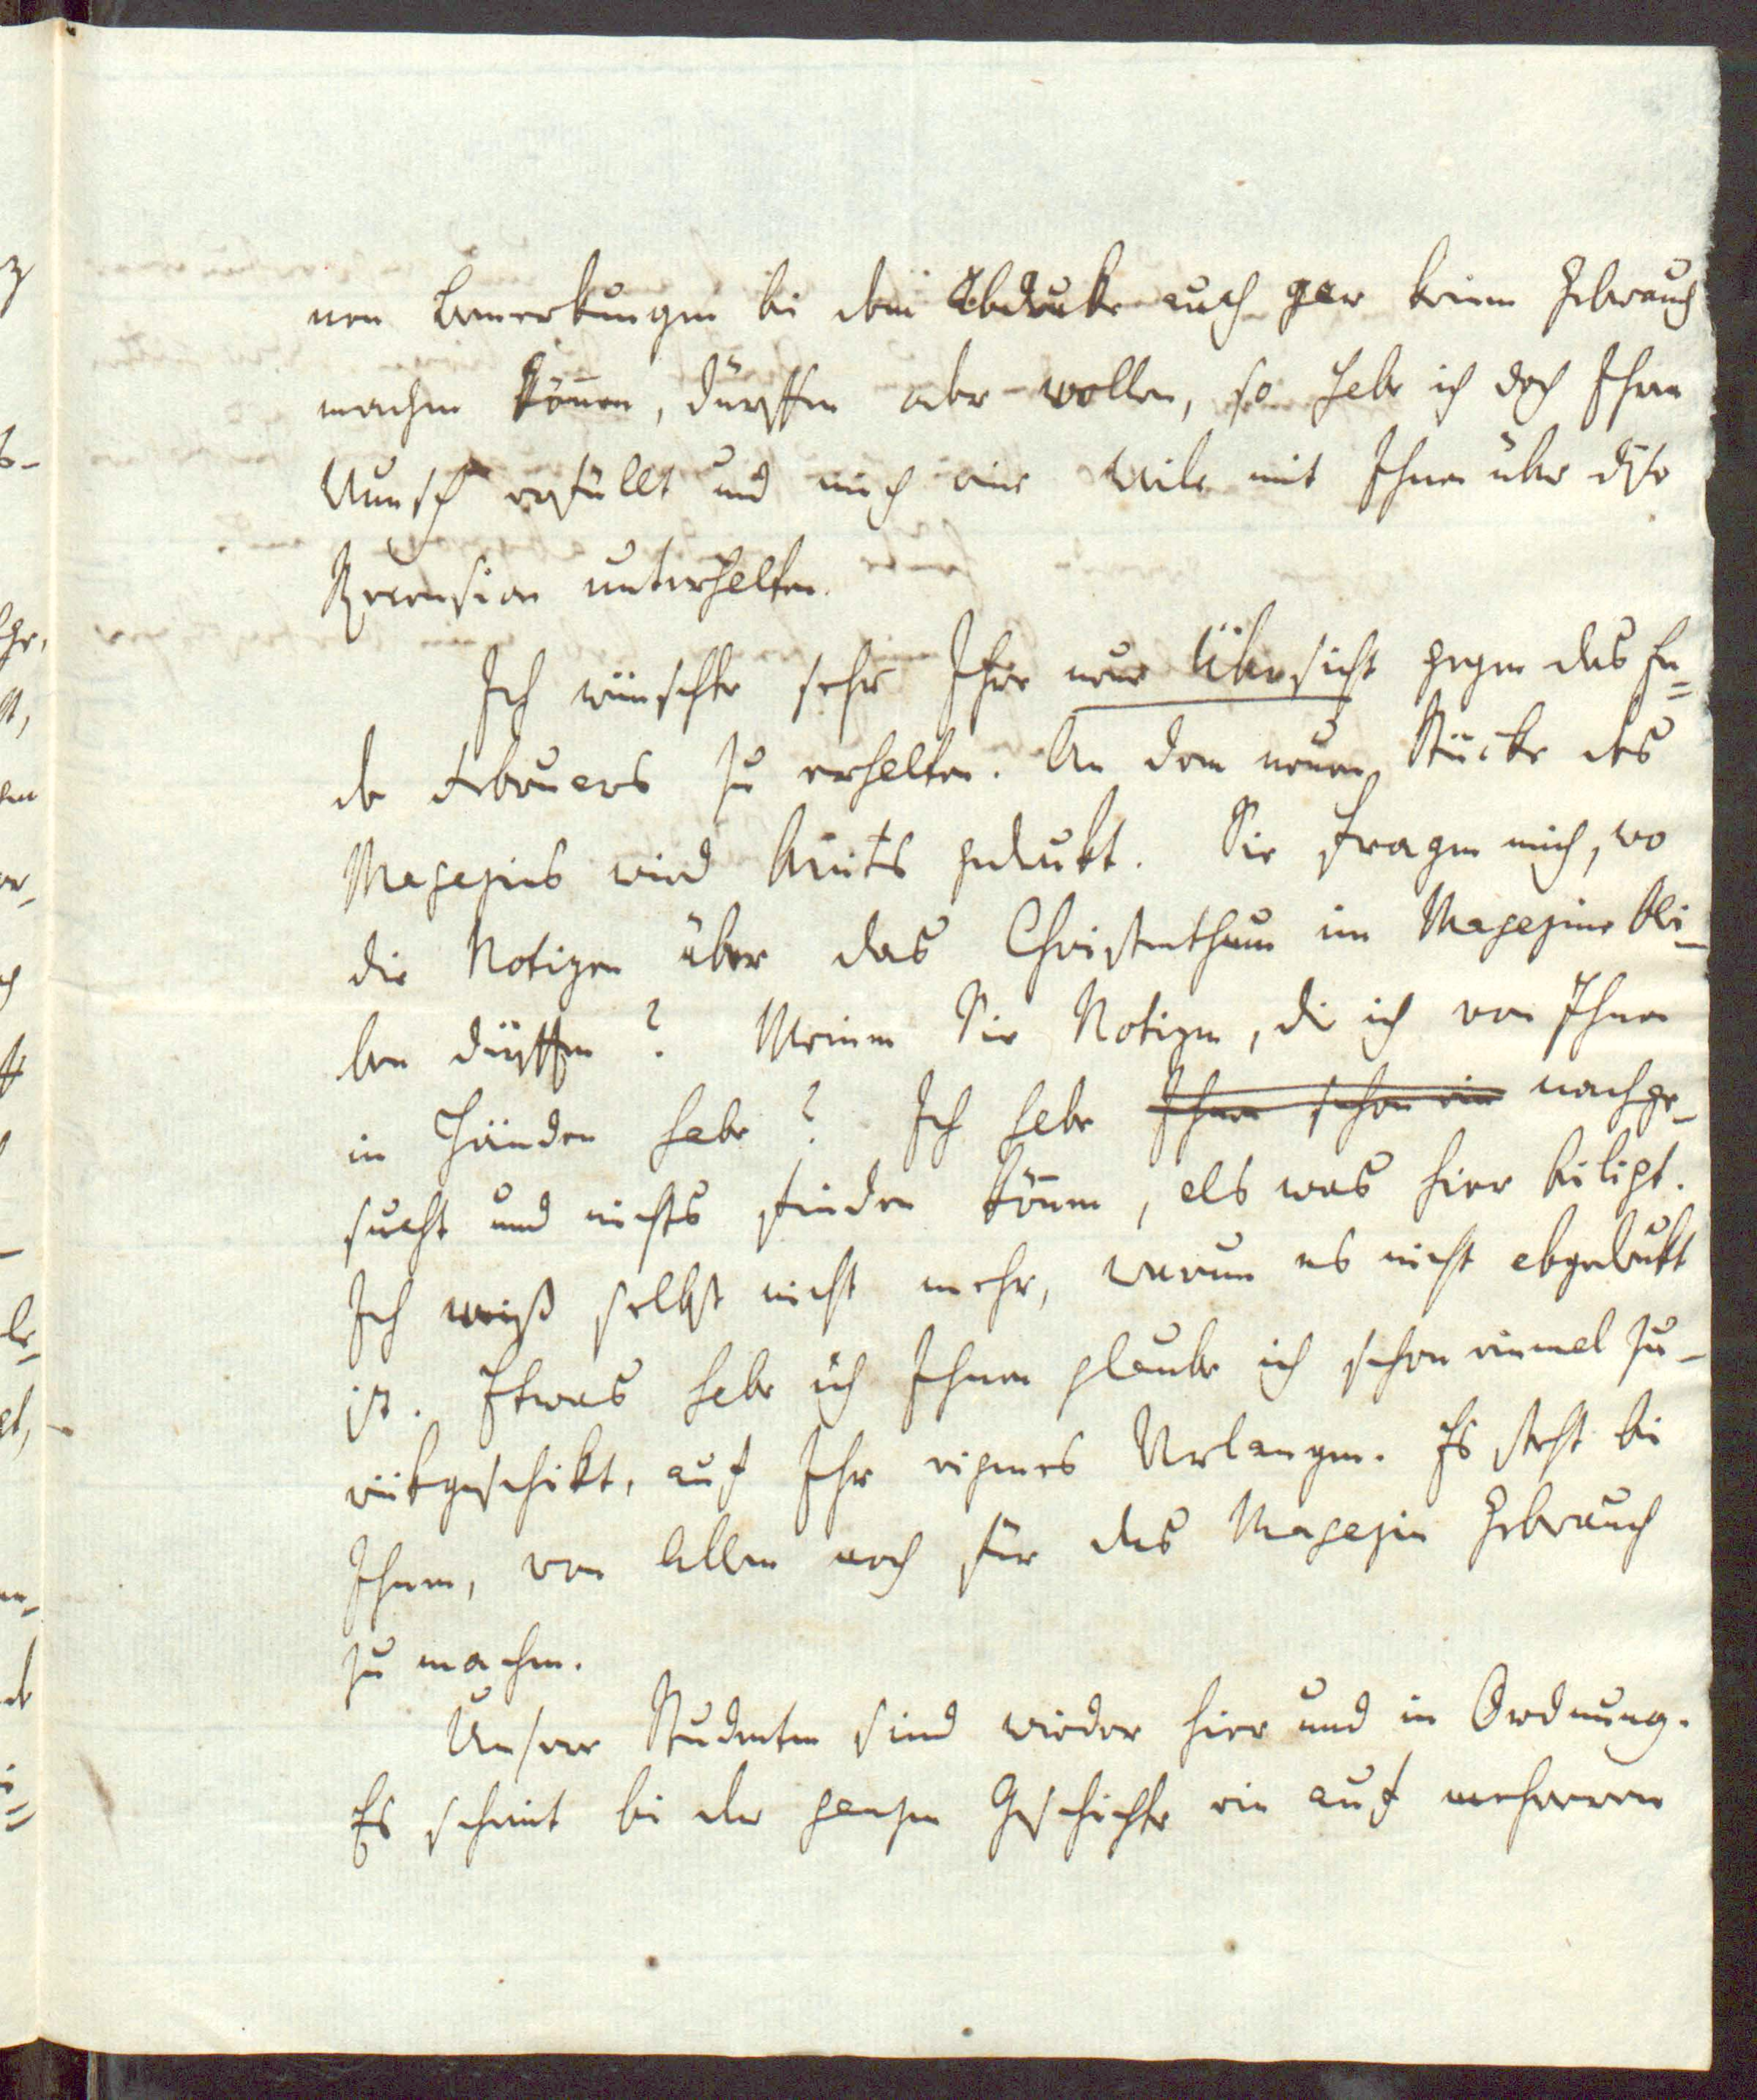 nen Bemerkungen bei dem Abdruke auch gar keinen Gebrauch
machen können, dürffen oder wollen, so habe ich doch Ihren
Wunsch erfüllt und mich eine Weile mit Ihnen über diese
Recension unterhalten.
Ich wünschte sehr Ihre neue Übersicht gegen das En=
de Februars zu erhalten. An dem neuen Stücke des
Magazins wird bereits gedrukt. Sie fragen mich, wo
die Notizen über das Christenthum im Magazine blei-
ben dürffen? Meinen Sie Notizen, die ich von Ihnen
in Händen habe? Ich habe Ihnen schon ein nachge-
sucht und nichts finden können, als was hier beiligt.
Ich weiß selbst nicht mehr, warum es nicht abgedrukt
ist. Etwas habe ich Ihnen glaube ich schon einmal zu-
rükgeschikt, auf Ihr eigenes Verlangen. Es steht bei
Ihnen, von Allem noch für das Magazin Gebrauch
zu machen.
Unsere Studenten sind wieder hier und in Ordnung.
Es scheint bei der ganzen Geschichte ein auf mehreren